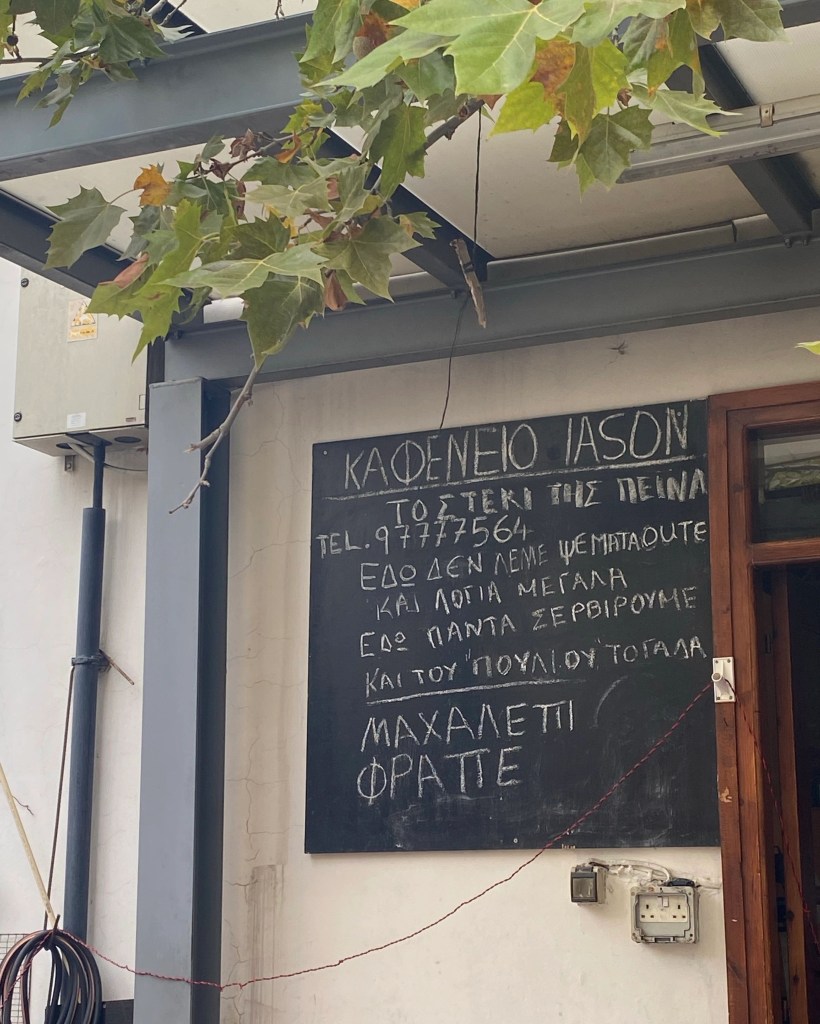 ΚΑΦΕΝΕΙΟ IASON
ΤΟ ΣΤΕΚΙ ΤΗΣ ΠΕΙΝΑ
TEL. 97777564
ΕΔΩ ΔΕΝ ΛΕΜΕ ΨΕΜΑΤΑ ΟΥΤΕ
ΚΑΙ ΛΟΓΙΑ ΜΕΓΑΛΑ
ΕΔΩ ΠΑΝΤΑ ΣΕΡΒΙΡΟΥΜΕ
ΚΑΙ ΤΟΥ "ΠΟΥΛΙΟΥ" ΤΟ ΓΑΛΑ
ΜΑΧΑΛΕΠΙ
ΦΡΑΠΠΕ